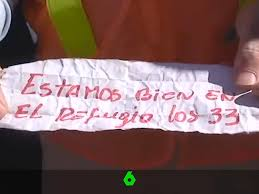 ESTAMOS BIEN EN
EL REFUGIO LOS 33
6